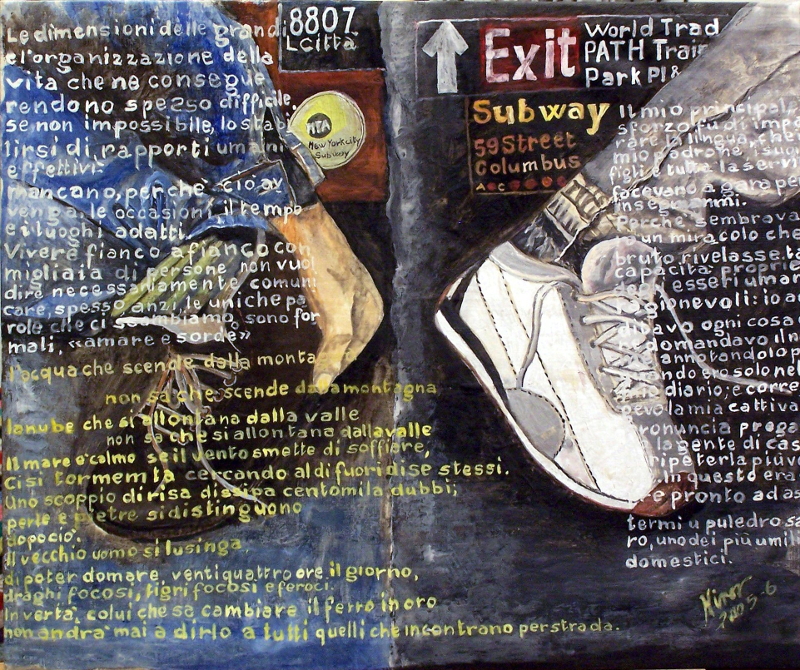 Le dimensioni delle grandi
e l'organizzazione della
vita che ne consegue
rendono spesso difficile,
se non impossibile, lo stabi
lirsi di rapporti umani
effettivi
mancano, perchè ciò av
venga, le occasioni, il tempo
e i luoghi adatti.
Vivere fianco a fianco con
migliaia di persone non vuol
dire necessariamente comuni
care, spesso anzi, le uniche pa
role che ci scambiamo, sono for
mali, «amare e sorde»
l'acqua che scende dalla monta
non sa che scende dalla montagna
la nube che si allontana dalla valle
non sa che si allontana dalla valle
Il mare è calmo se il vento smette di soffiare,
Ci si tormenta cercando al di fuori di se stessi.
Uno scoppio di risa dissipa centomila dubbi;
perle e pietre si distinguono
dopociò.
Il vecchio uomo si lusinga
di poter domare, ventiquattro ore il giorno,
draghi focosi, tigri focosi e feroci.
In verta, colui che sa cambiare il ferro in oro
non andra mai a dirlo a tutti quelli che incontrano per strada.
8807
L Città
MTA
New York city
Subway
Exit
World Trad
PATH Train
Park Pl &
Subway
59 Street
Columbus
A C
Il mio principale
sforzo fu di impa
rare la lingua, che
mio padrone, i suoi
figli e tutta la servi
facevano a gara per
insegnarmi.
Perchè sembrava
un miracolo che
bruto rivelasse ta
capacità proprie
degli esseri uman
ragionevoli: io an
dibavo ogni cosa
domandavo il n
annotandolo p
ndo ero solo nel
mio diario; e corre
evo la mia cattiva
pronuncia prega
la gente di cas
ripeterla più v
In questo era
re pronto ad as
termi u puledro sa
ro, uno dei più umili
domestici.
2005-6